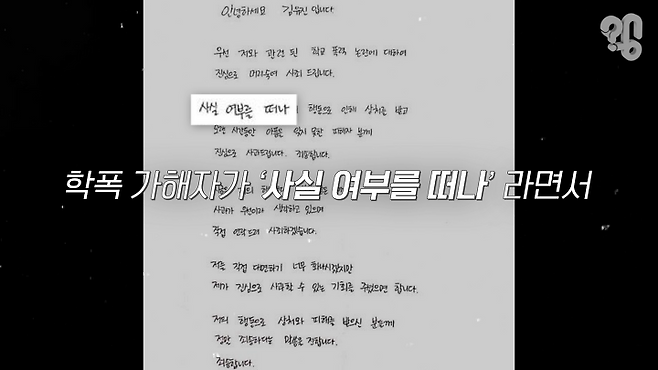 안녕하세요 김유진 입니다
우선 저와 관련된 학교 폭력 논란에 대하여
진심으로 머리숙여 사죄 드립니다.
사실 여부를 떠나 저의 행동으로 인해 상처를 받고
오랜 시간동안 아픔을 잊지 못한 피해자 분께
진심으로 사과드립니다. 죄송합니다.
학폭 가해자가 ‘사실 여부를 떠나’ 라면서
사과가 우선이라 생각하고 있으며
직접 연락드려 사죄하겠습니다.
저를 직접 대면하기 너무 화나시겠지만
제가 진심으로 사과할 수 있는 기회를 주셨으면 합니다.
저의 행동으로 상처와 피해를 받으신 분들께
정말 죄송하다는 말씀을 전합니다.
죄송합니다.